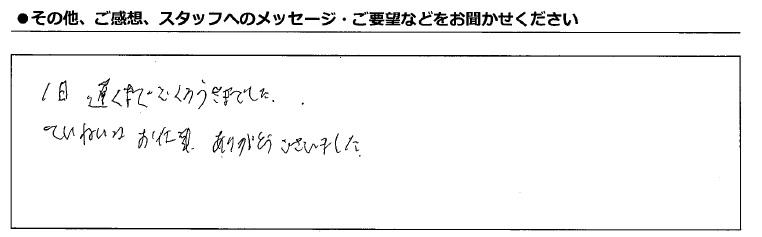 ●その他、ご感想、スタッフへのメッセージ・ご要望などをお聞かせください
1日 遅くまでごくろうさまでした.
ていねいな お仕事 ありがとうございました